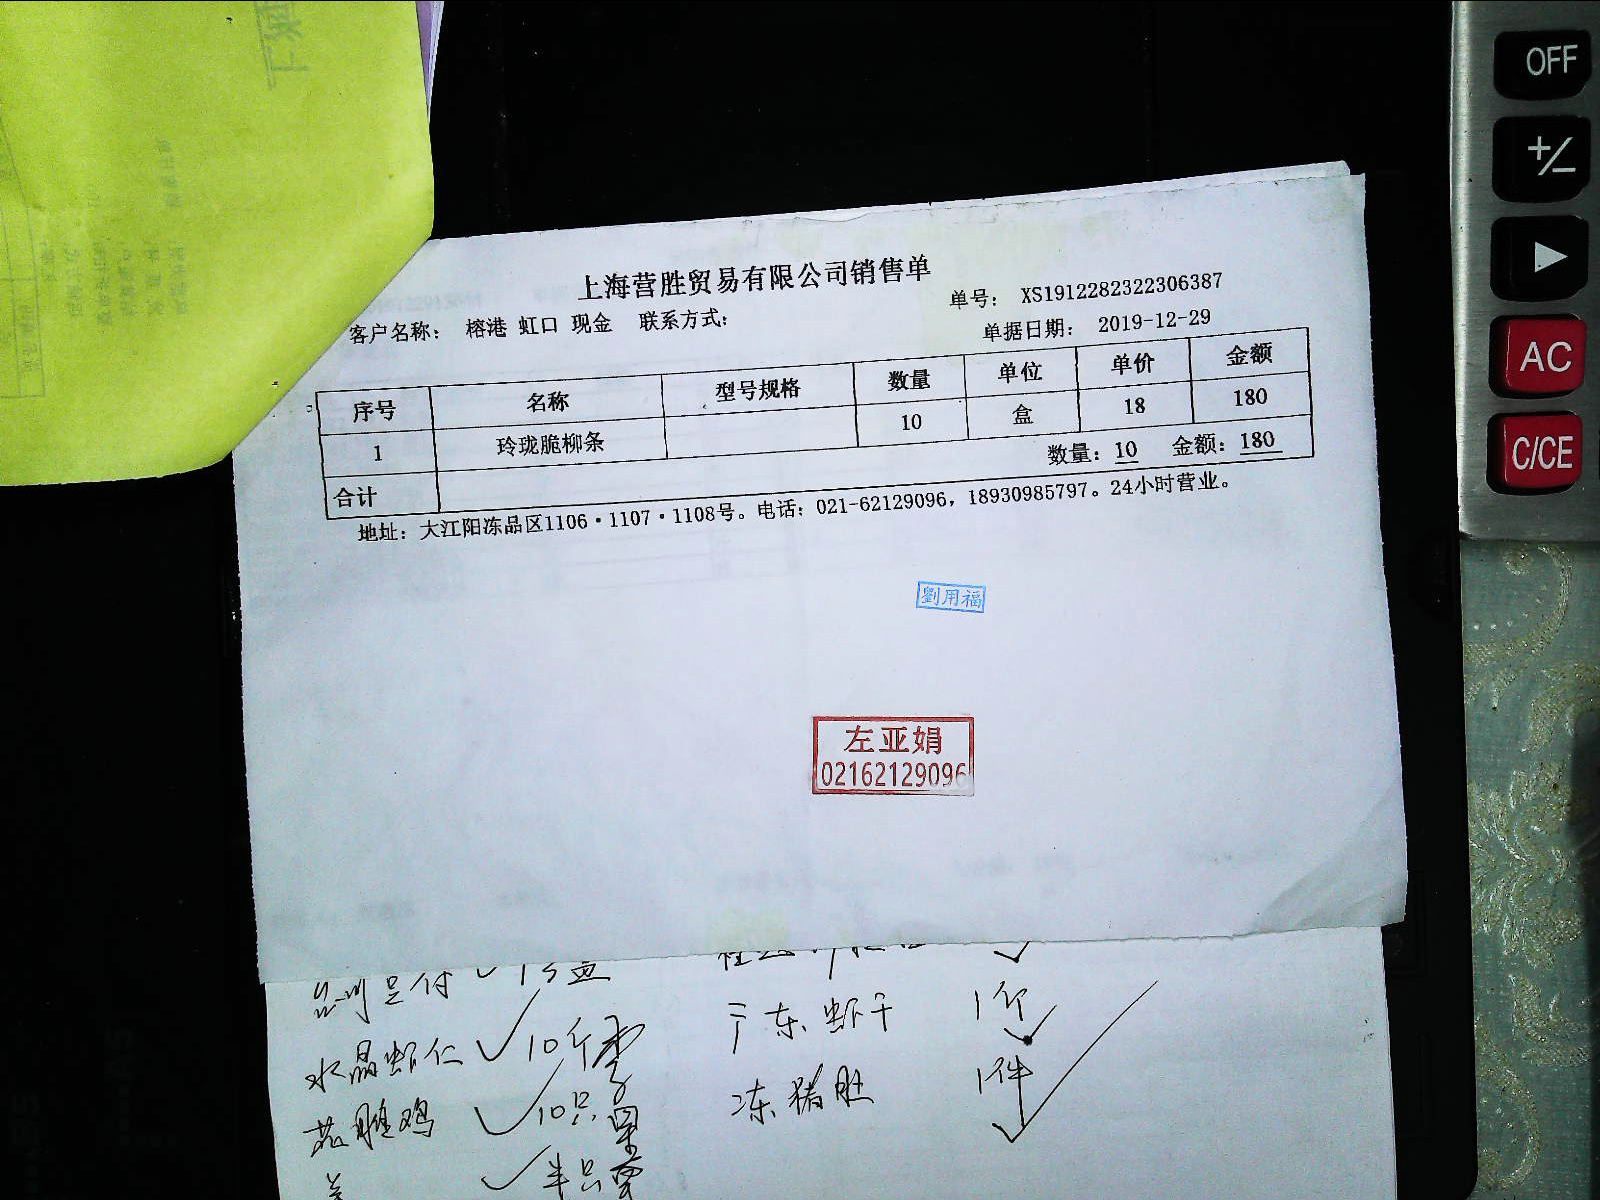 上海营胜贸易有限公司销售单
单号： XS1912282322306387
客户名称： 榕港 虹口 现金 联系方式：
单据日期： 2019-12-29
序号 名称 型号规格 数量 单位 单价 金额
1 玲珑脆柳条 10 盒 18 180
合计 数量：10 金额：180
地址：大江阳冻品区1106·1107·1108号。电话：021-62129096，18930985797。24小时营业。
劉用福
左亚娟
02162129096
水晶虾仁 10斤
10只
半只
广东虾干 1斤
冻猪肚 1件
OFF
+/−
▶
AC
C/CE